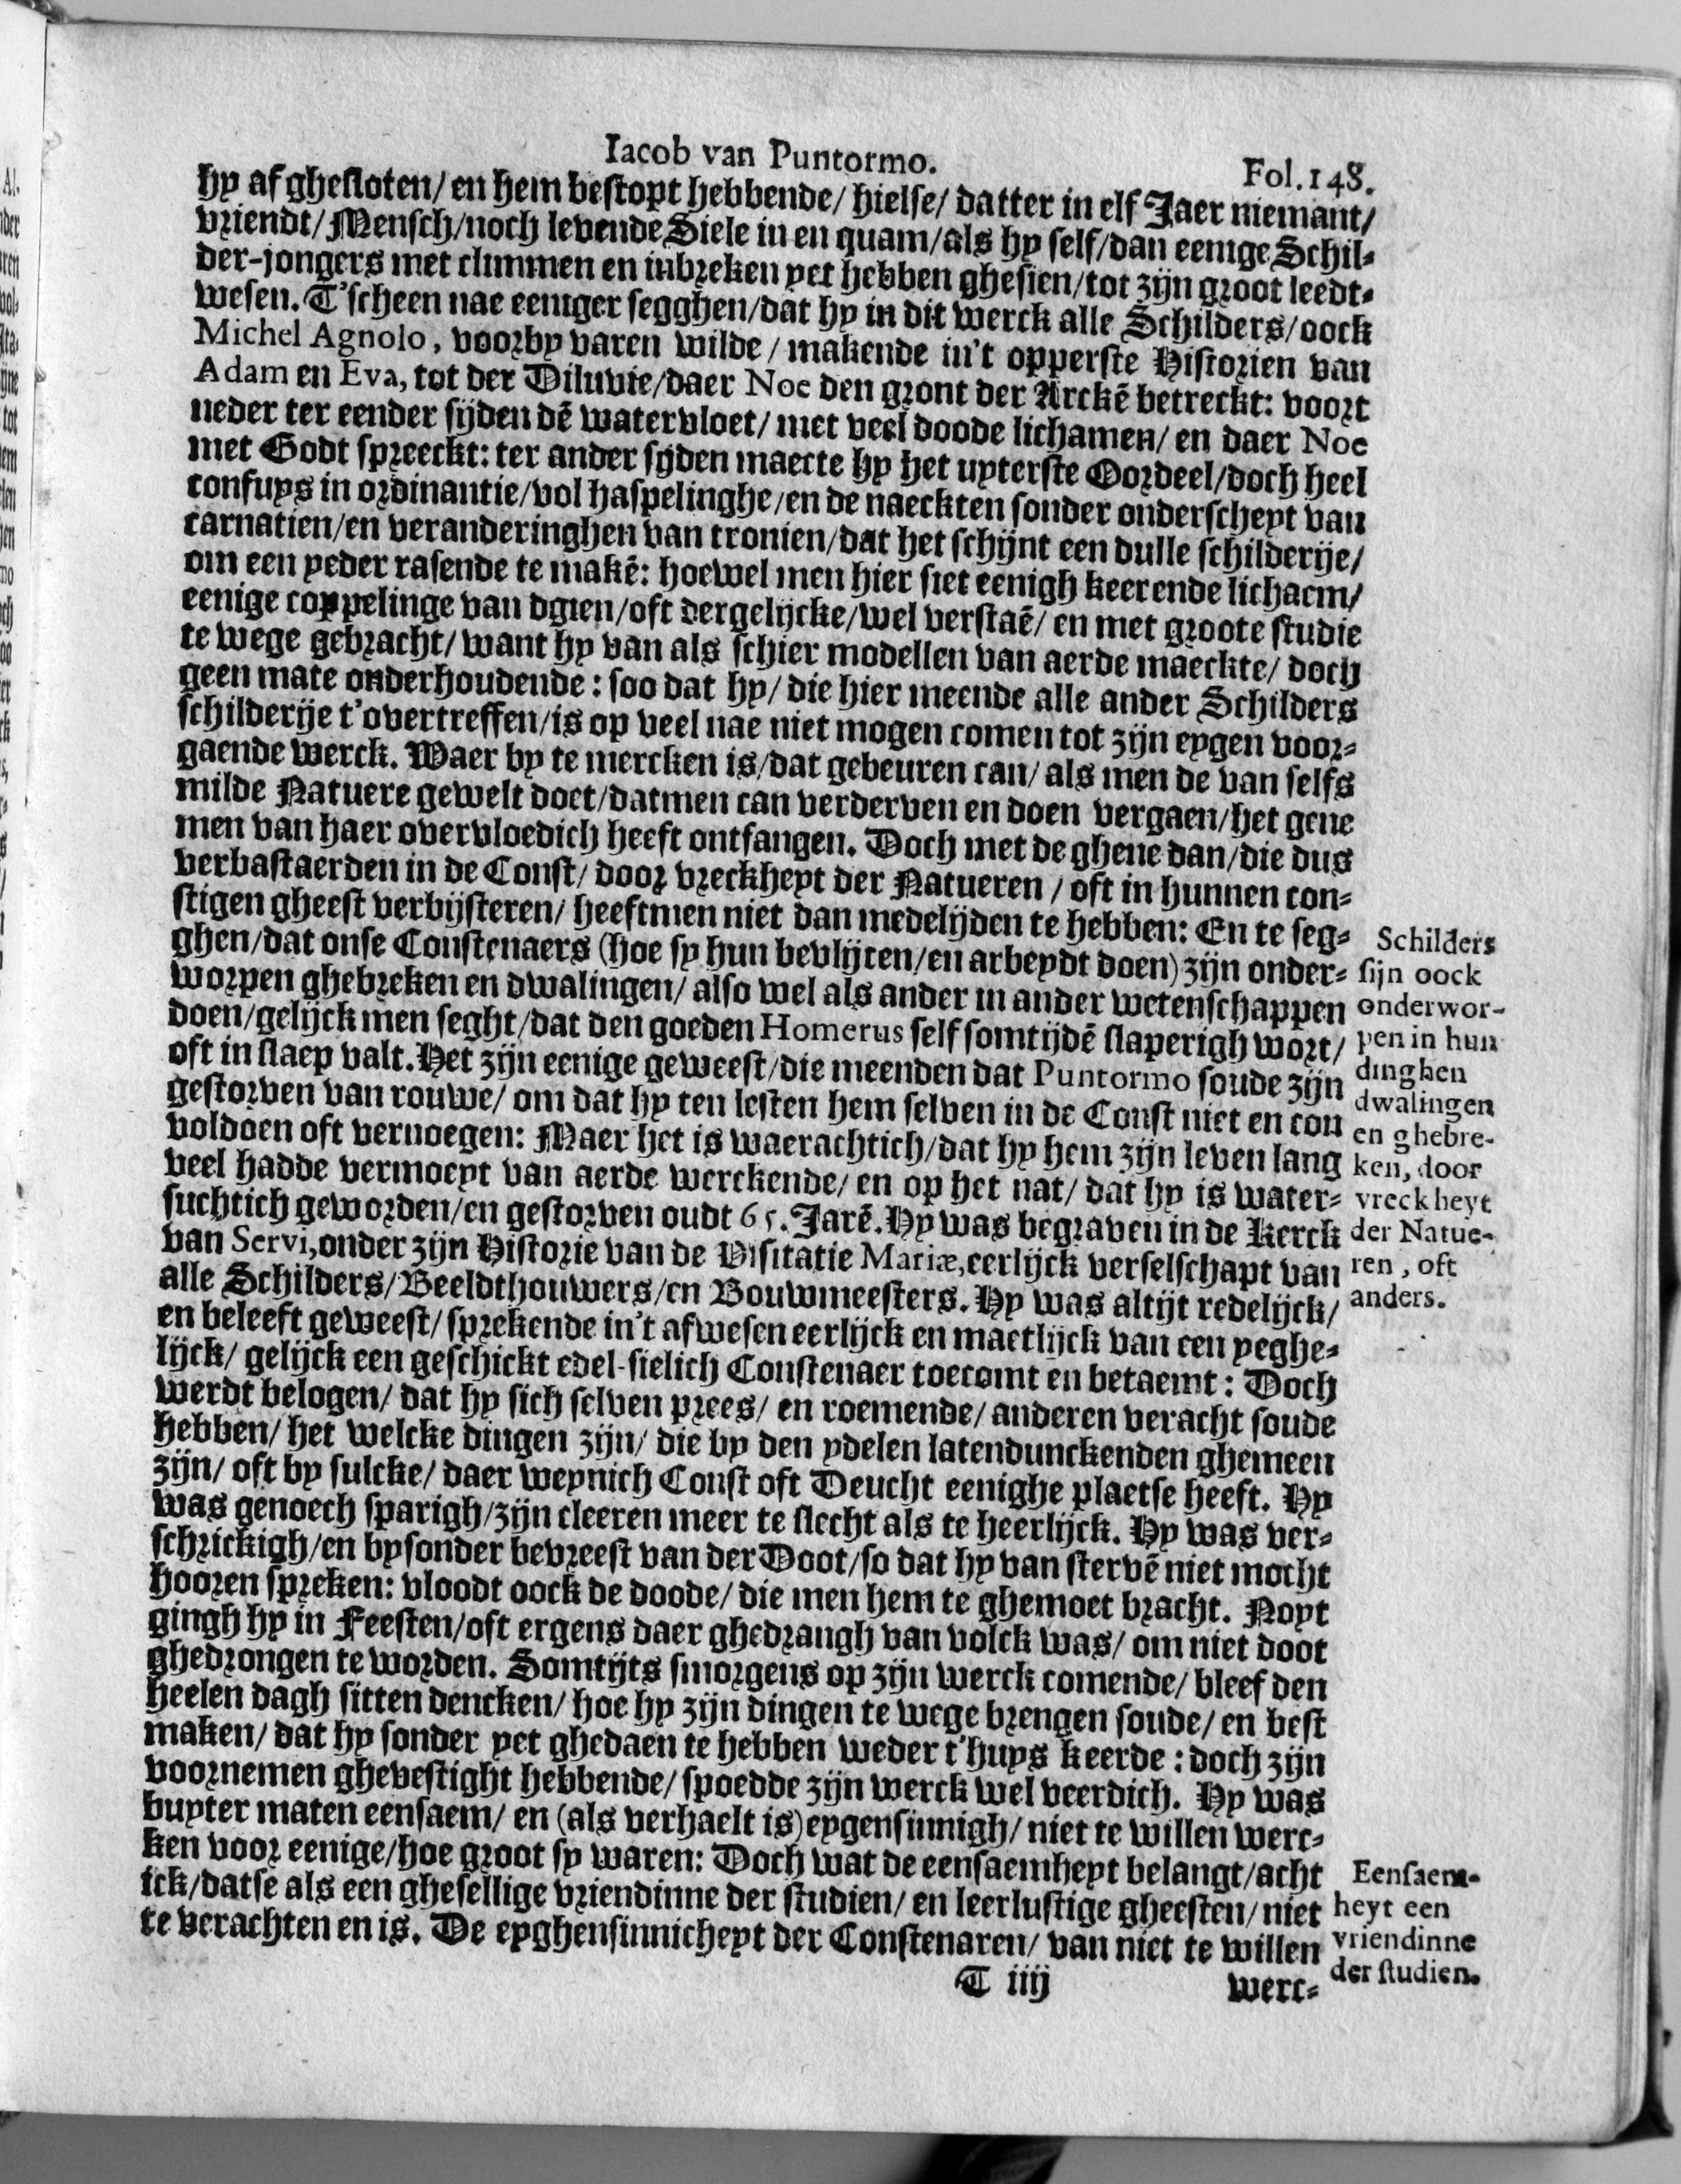 Iacob van Puntormo.
Fol.148.
hy af ghesloten/ en hem bestopt hebbende/ hielse/ datter in elf Jaer niemant/
vriendt/Mensch/noch levende Siele in en quam/als hy self/dan eenige Schil-
der-jongers met climmen en inbreken yet hebben ghesien/tot zijn groot leedt-
wesen. T'scheen nae eeniger segghen/dat hy in dit werck alle Schilders/oock
Michel Agnolo, voorby varen wilde/ makende in't opperste Historien van
Adam en Eva, tot der Diluvie/daer Noe den gront der Arckē betreckt: voort
neder ter eender sijden dē watervloet/ met veel doode lichamen/ en daer Noe
met Godt spreeckt: ter ander sijden maecte hy het uyterste Oordeel/doch heel
confuys in ordinantie/vol haspelinghe/en de naeckten sonder onderscheyt van
carnatien/en veranderinghen van tronien/dat het schijnt een dulle schilderije/
om een yeder rasende te makē: hoewel men hier siet eenigh keerende lichaem/
eenige coppelinge van dgien/oft dergelijcke/wel verstaē/ en met groote studie
te wege gebracht/ want hy van als schier modellen van aerde maeckte/ doch
geen mate onderhoudende: soo dat hy/ die hier meende alle ander Schilders
schilderije t'overtreffen/is op veel nae niet mogen comen tot zijn eygen voor-
gaende werck. Waer by te mercken is/dat gebeuren can/ als men de van selfs
milde Natuere gewelt doet/datmen can verderven en doen vergaen/het gene
men van haer overvloedich heeft ontfangen. Doch met de ghene dan/die dus
verbastaerden in de Const/ door vreckheyt der Natueren / oft in hunnen con-
stigen gheest verbijsteren/ heeftmen niet dan medelijden te hebben: En te seg-
ghen/dat onse Constenaers (hoe sy hun bevlijten/en arbeydt doen) zijn onder-
worpen ghebreken en dwalingen/ also wel als ander in ander wetenschappen
doen/gelijck men seght/dat den goeden Homerus self somtijdē slaperigh wort/
oft in slaep valt. Het zijn eenige geweest/die meenden dat Puntormo soude zijn
gestorven van rouwe/ om dat hy ten lesten hem selven in de Const niet en con
voldoen oft vernoegen: Maer het is waerachtich/dat hy hem zijn leven lang
veel hadde vermoeyt van aerde werckende/ en op het nat/ dat hy is water-
suchtich geworden/en gestorven oudt 65. Jarē. Hy was begraven in de Kerck
van Servi, onder zijn Historie van de Visitatie Mariæ, eerlijck verselschapt van
alle Schilders/Beeldthouwers/en Bouwmeesters. Hy was altijt redelijck/
en beleeft geweest/ sprekende in't afwesen eerlijck en maetlijck van een yeghe-
lijck/ gelijck een geschickt edel-sielich Constenaer toecomt en betaemt: Doch
werdt belogen/ dat hy sich selven prees/ en roemende/ anderen veracht soude
hebben/ het welcke dingen zijn/ die by den ydelen latendunckenden ghemeen
zijn/ oft by sulcke/ daer weynich Const oft Deucht eenighe plaetse heeft. Hy
was genoech sparigh/zijn cleeren meer te slecht als te heerlijck. Hy was ver-
schrickigh/en bysonder bevreest van der Doot/so dat hy van stervē niet mocht
hooren spreken: vloodt oock de doode/ die men hem te ghemoet bracht. Noyt
gingh hy in Feesten/oft ergens daer ghedrangh van volck was/ om niet doot
ghedrongen te worden. Somtijts smorgens op zijn werck comende/ bleef den
heelen dagh sitten dencken/ hoe hy zijn dingen te wege brengen soude/ en best
maken/ dat hy sonder yet ghedaen te hebben weder t'huys keerde: doch zijn
voornemen ghevestight hebbende/ spoedde zijn werck wel veerdich. Hy was
buyter maten eensaem/ en (als verhaelt is) eygensinnigh/ niet te willen werc-
ken voor eenige/hoe groot sy waren: Doch wat de eensaemheyt belangt/acht
ick/datse als een ghesellige vriendinne der studien/ en leerlustige gheesten/ niet
te verachten en is. De eyghensinnicheyt der Constenaren/ van niet te willen
T iiij
werc-
Schilders
sijn oock
onderwor-
pen in hun
dinghen
dwalingen
en ghebre-
ken, door
vreckheyt
der Natue-
ren, oft
anders.
Eensaem-
heyt een
vriendinne
der studien.